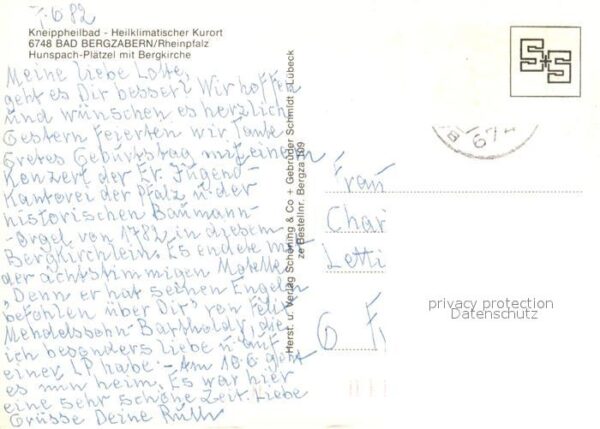 7.6.82
Kneippheilbad - Heilklimatischer Kurort
6748 BAD BERGZABERN/Rheinpfalz
Hunspach-Plätzel mit Bergkirche
Meine liebe Lotte,
geht es Dir besser? Wir hoffen
und wünschen es herzlich.
Gestern feierten wir Tante
Gretes Geburtstag mit einem
Konzert der Ev. Jugend-
Kantorei der Pfalz u. der
historischen Baumann-
-Orgel von 1782 in diesem
Bergkirchlein. Es endete mit
der achtstimmigen Motette
"Denn er hat seinen Engeln
befohlen über Dir" von Felix
Mendelssohn-Bartholdy, die
ich besonders liebe u. auf
einer LP habe. - Am 10.6. geht
es nun heim. Es war hier
eine sehr schöne Zeit. Liebe
Grüsse Deine Ruth
Herst. u. Verlag Schöning & Co + Gebrüder Schmidt - Lübeck
ze Bestellnr. Bergza 109
S+S
674
Frau
Char
Letti
6 F
privacy protection
Datenschutz